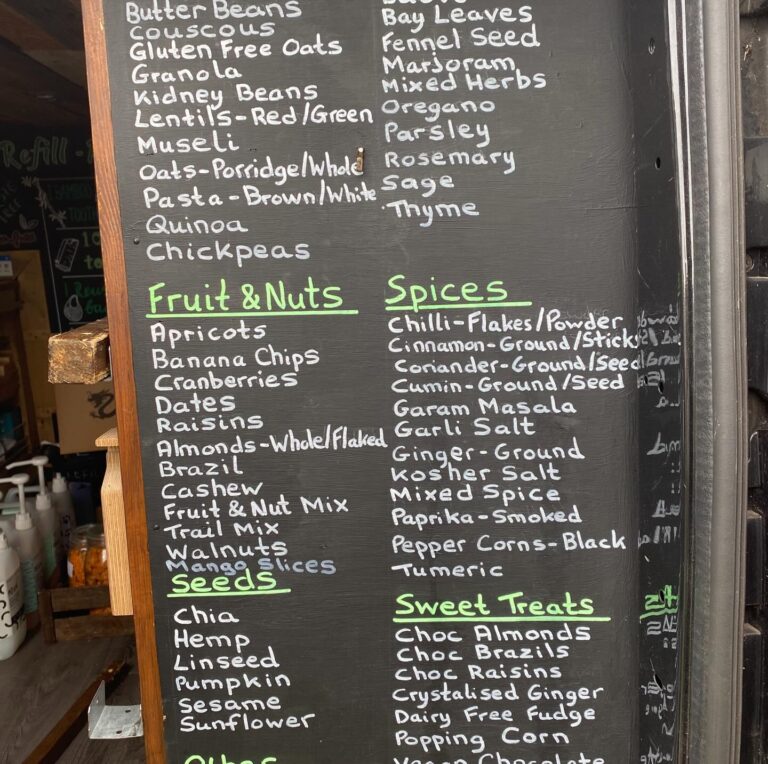 Butter Beans
Couscous
Gluten Free Oats
Granola
Kidney Beans
Lentils-Red/Green
Museli
Oats-Porridge/Whole
Pasta-Brown/White
Quinoa
Chickpeas
Fruit & Nuts
Apricots
Banana Chips
Cranberries
Dates
Raisins
Almonds-Whole/Flaked
Brazil
Cashew
Fruit & Nut Mix
Trail Mix
Walnuts
Mango Slices
Seeds
Chia
Hemp
Linseed
Pumpkin
Sesame
Sunflower
Other
Bay Leaves
Fennel Seed
Marjoram
Mixed Herbs
Oregano
Parsley
Rosemary
Sage
Thyme
Spices
Chilli-Flakes/Powder
Cinnamon-Ground/Sticks
Coriander-Ground/Seed
Cumin-Ground/Seed
Garam Masala
Garli Salt
Ginger-Ground
Kosher Salt
Mixed Spice
Paprika-Smoked
Pepper Corns-Black
Tumeric
Sweet Treats
Choc Almonds
Choc Brazils
Choc Raisins
Crystalised Ginger
Dairy Free Fudge
Popping Corn
Vegan Chocolate
Refill